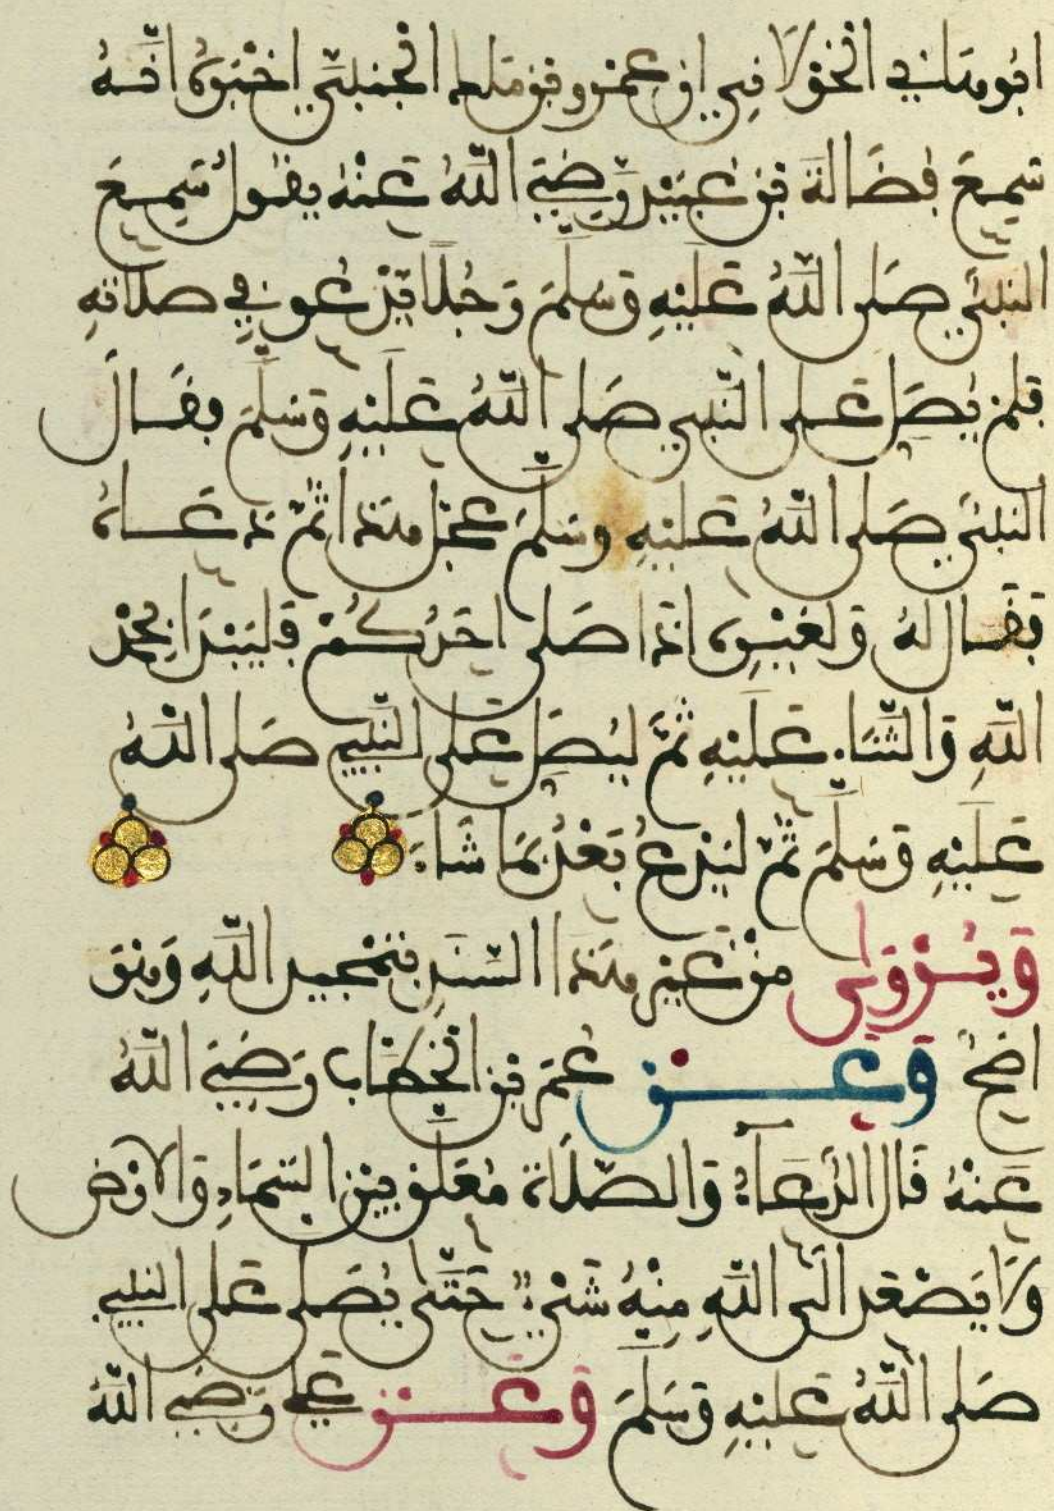 ابو هانئ الخولاني ان عمرو بن ملك الجنبي اخبره انه
سمع فضالة بن عبيد رضي الله عنه يقول سمع
النبي صلى الله عليه وسلم رجلا يدعو في صلاته
فلم يصل على النبي صلى الله عليه وسلم فقال
النبي صلى الله عليه وسلم عجل هذا ثم دعاه
فقال له ولغيره اذا صلى احدكم فليبدا بحمد
الله والثناء عليه ثم ليصل على النبي صلى الله
عليه وسلم ثم ليدع بعد بما شاء
ويروى من غير هذا السند بتمجيد الله وهو
اصح وعن عمر بن الخطاب رضي الله
عنه قال الدعاء والصلاة معلق بين السماء والارض
ولا يصعد الى الله منه شيء حتى يصلى على النبي
صلى الله عليه وسلم وعن علي رضي الله